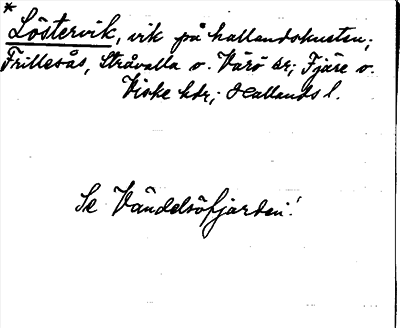 *
Löstervik, vik på hallandskusten;
Frillesås, Stråvalla o. Värö sr; Fjäre o.
Viske hdr; Hallands l.
Se Vändelsöfjorden!